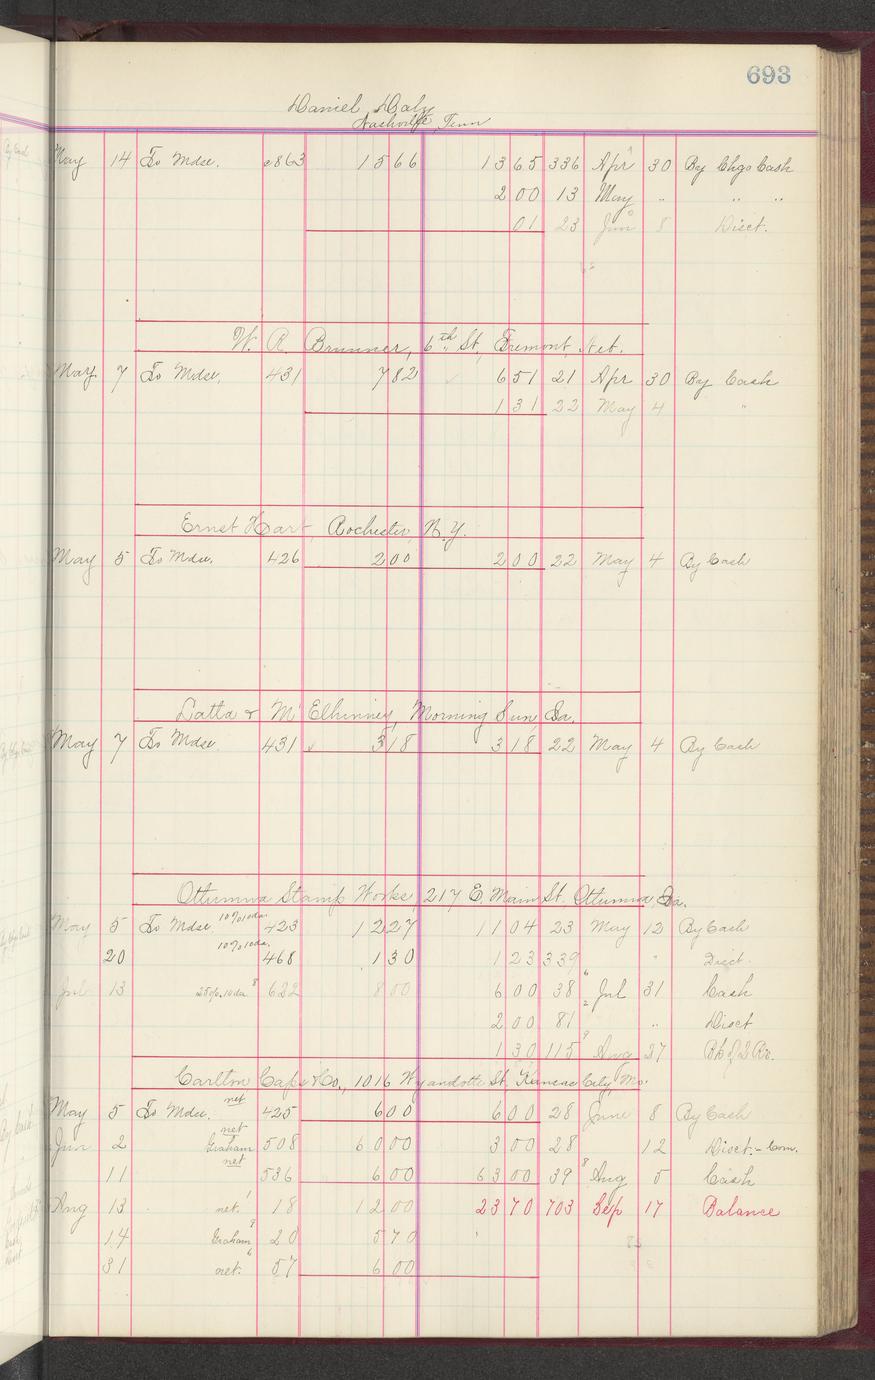 693
Daniel Daly
Nashville Tenn
May 14 To Mdse. 863 15 66 13 65 336 Apr 30 By Chgo Cash
2 00 13 May " " "
01 23 Jun 8 Disct.
W. R. Brunner, 6th St, Fremont, Neb.
May 7 To Mdse. 431 7 82 6 51 21 Apr 30 By Cash
1 31 22 May 4 "
Ernst Hart, Rochester, N.Y.
May 5 To Mdse. 426 2 00 2 00 22 May 4 By Cash
Latta & McElhinney, Morning Sun, Ia.
May 7 To Mdse. 431 3 18 3 18 22 May 4 By Cash
Ottumwa Stamp Works, 217 E. Main St. Ottumwa, Ia.
May 5 To Mdse. 10% 10da. 423 12 27 11 04 23 May 12 By Cash
20 10% 10da. 468 1 30 1 23 339 " Disct.
Jul 13 25% 10da 8 632 8 00 6 00 38 Jul 31 Cash
2 00 81 " Disct
1 30 115 Aug 27
Carlton Caps & Co., 1016 Wyandotte St. Kansas City, Mo.
May 5 To Mdse. net 425 6 00 6 00 28 June 8 By Cash
Jun 2 net Graham 508 60 00 3 00 28 12 Disct. - Com.
11 net 536 6 00 63 00 39 8 Aug 5 Cash
Aug 13 net. 18 12 00 23 70 703 Sep 17 Balance
14 Graham 20 5 70
31 net. 57 6 00